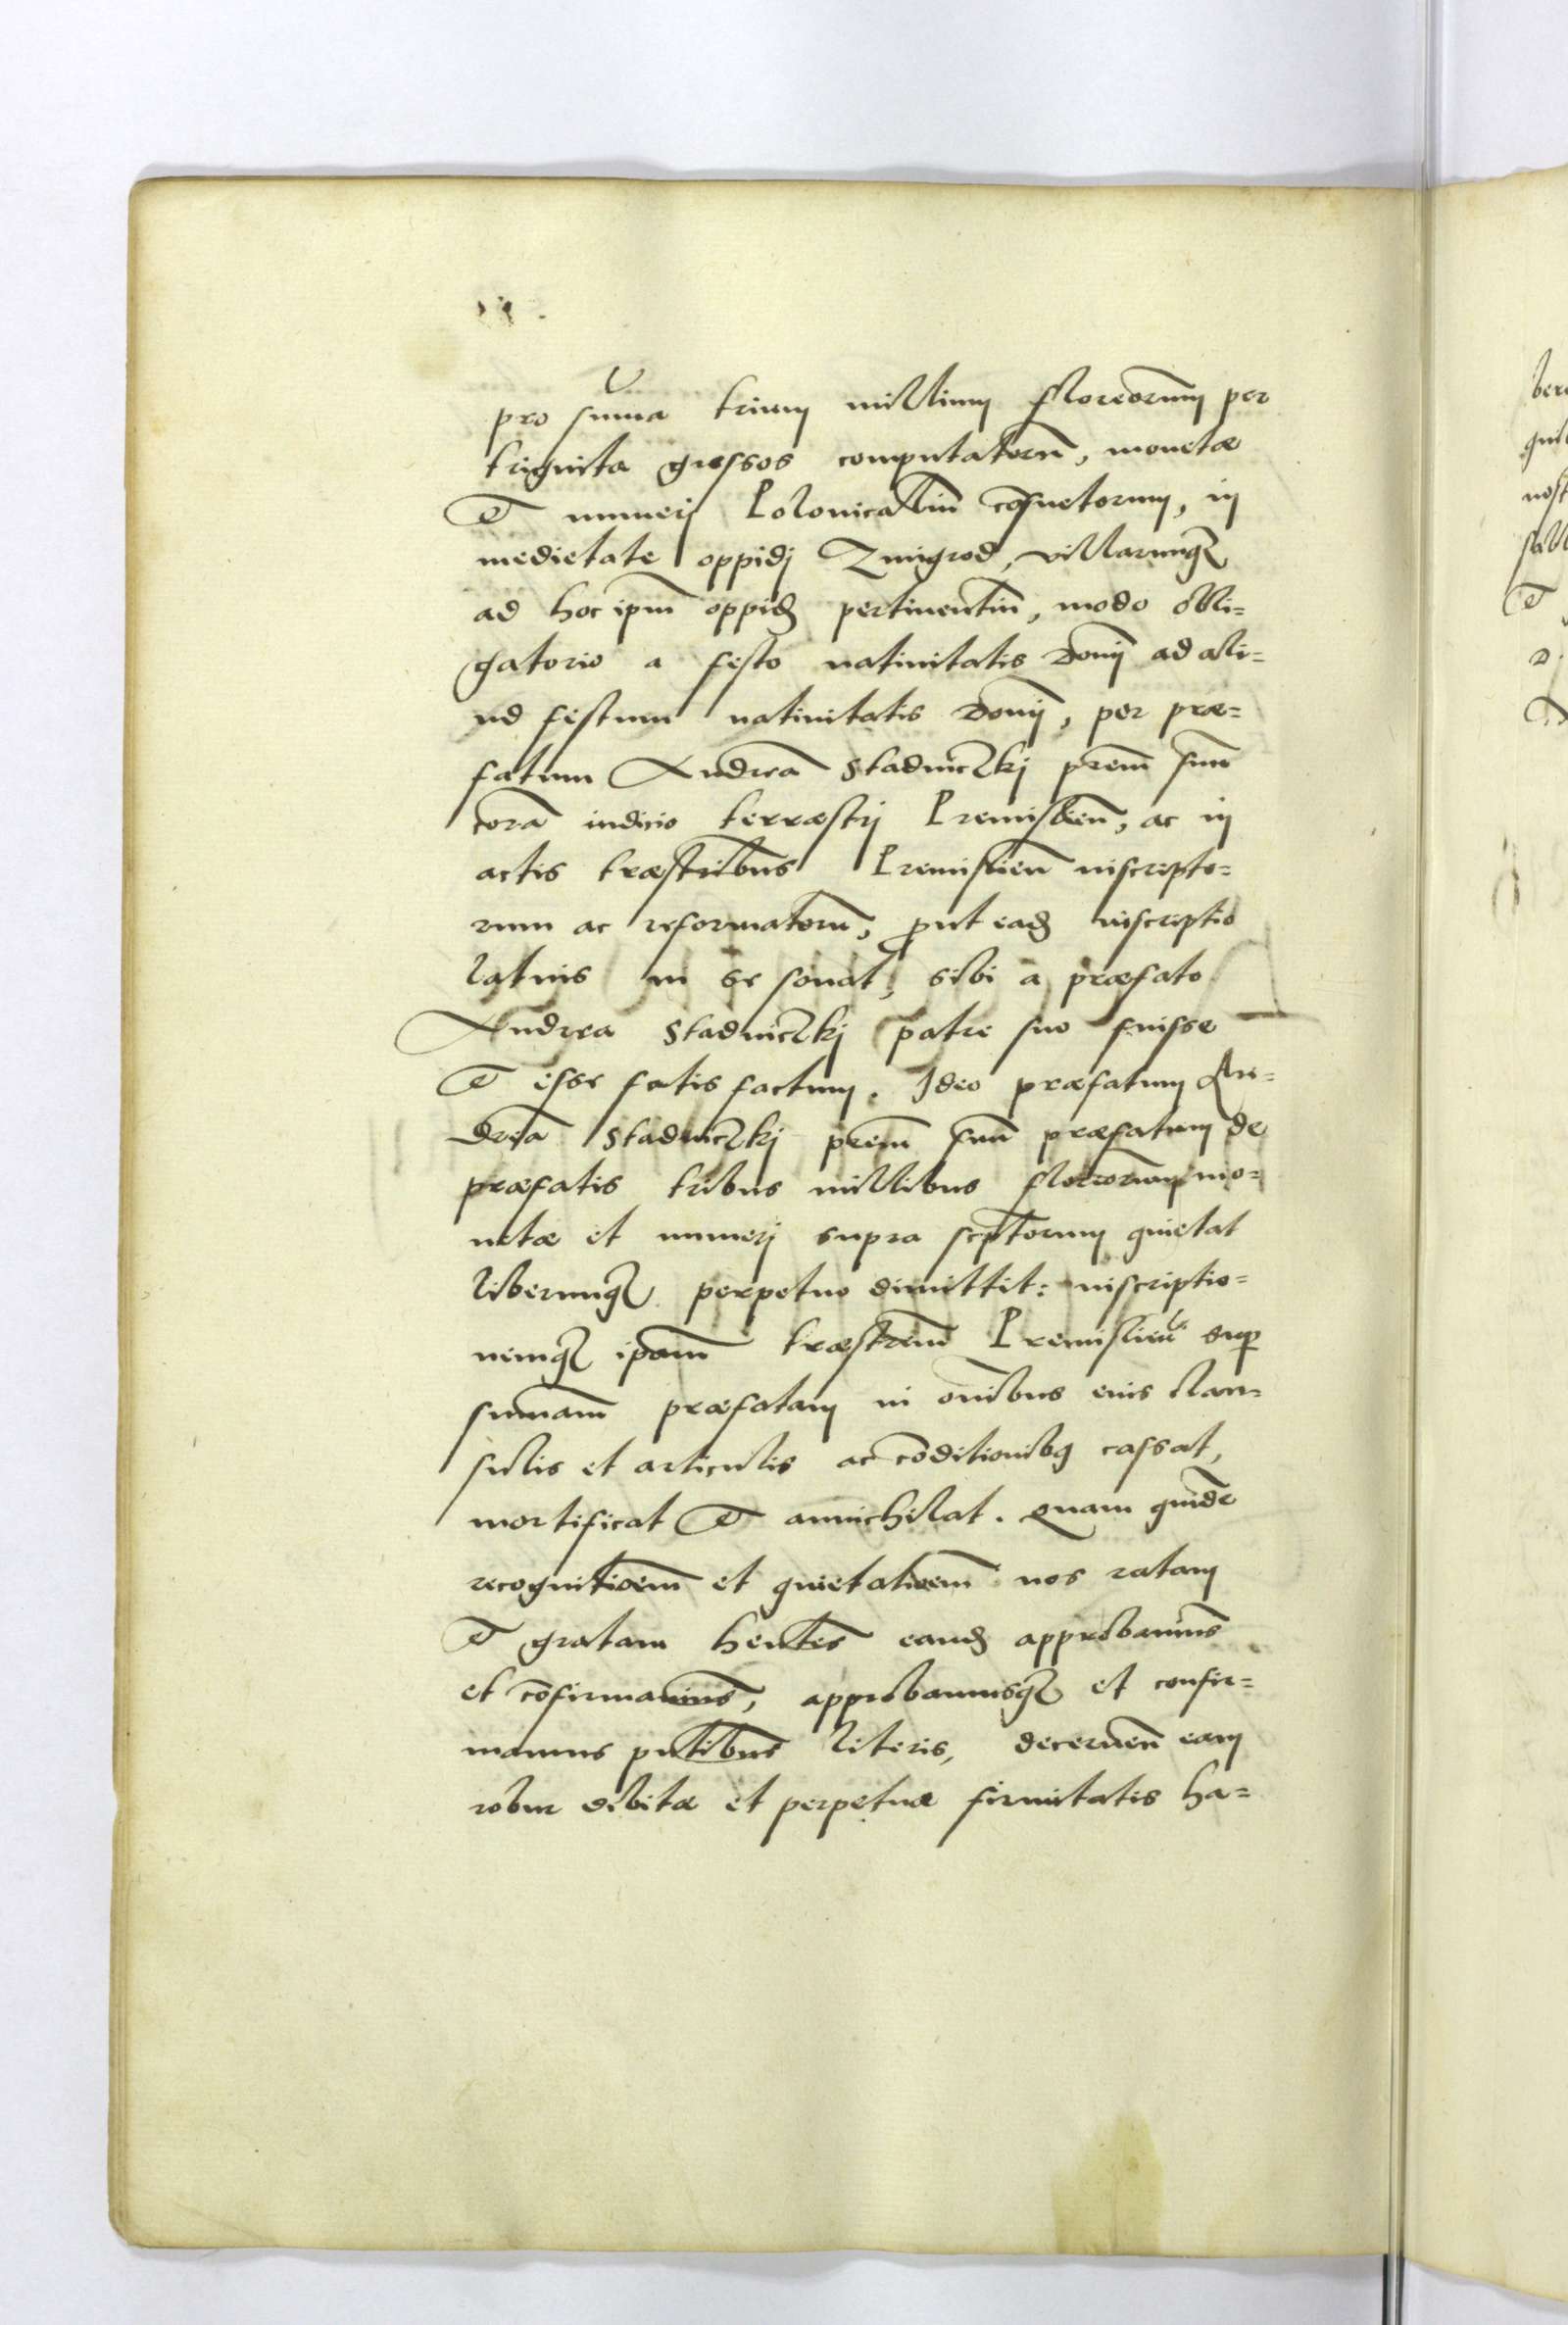 pro sum̃a trium millium florenorum̃ per
triginta grossos computatorũ, monetæ
et numeri Polonicaliũ cõsuetorum, in
medietate oppidj Zmigrod, villarumq₃
ad hoc ipm̃ oppid₃ pertinentiũ, modo obli=
gatorio a festo natiuitatis Domĩ ad ali=
ud festum natiuitatis Domĩ, per præ=
fatum Andreã Stadniczkj prem̃ suũ
corã iudicio terræstrj Premislieñ, ac in
actis træstribus Premislieñ inscripto=
rum ac reformatorũ, ꝓut ead₃ inscriptio
latius in se sonat, sibi a præfato
Andrea Stadniczkj patre suo fuisse
et esse satis factum. Ideo præfatum An=
dreã Stadniczkj prem̃ suũ præfatum de
præfatis tribus millibus florenorum mo=
netæ et numerj supra scptorum quietat
liberumq₃ perpetuo dimittit: inscriptio=
nemq₃ ipam̃ træstrem̃ Premislieñ sup
summam̃ præfatam in om̃ibus eius clau=
sulis et articulis ac cõditionibq cassat,
mortificat et annichilat. Quam quidẽ
recognitioem̃ et quietatioem̃ nos ratam
et gratam hentes eand₃ approbauimũs
et cõfirmauimũs, approbamusq₃ et confir=
mamus pñtibus literis, decerneñ eam
robur debitæ et perpetuæ firmitatis ha=